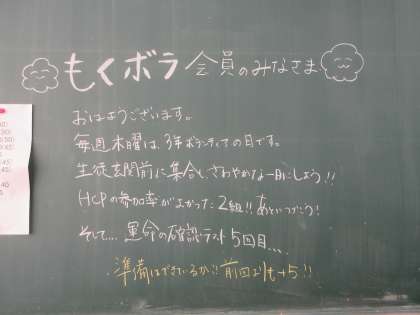 もくボラ 会員のみなさま
おはようございます。
毎週木曜は、3年ボランティアの日です。
生徒玄関前に集合し、さわやかな一日にしよう!!
HCPの参加率がよかった2組!! あとにつづこう!
そして… 運命の確認テスト5回目…
準備はできているか!! 前回より+5!!